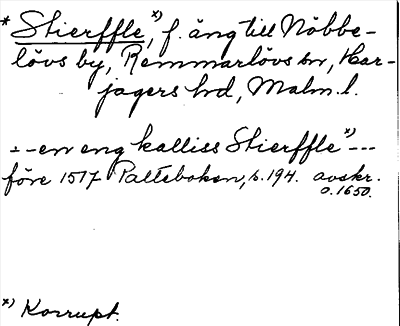 * Stierffle, *) f. äng till Nöbbe-
lövs by, Remmarlövs sn, Har-
jagers hd, Malm. l.
±--en eng kalliss Stierffle *)---
före 1517 Palteboken, s. 194. avskr.
o. 1650.
*) Korrupt.